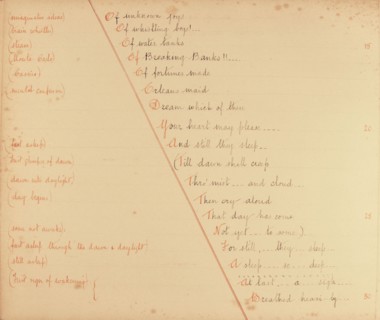 (imaginative ideas) Of unknown joys
(train whistle) Of whistling boys!...
(steam) Of water tanks 15
Of Breaking Banks!!....
Of fortunes made
(mental confusion) Orleans maid
Dream which of these
Your heart may please.....
(fast asleep) And still they sleep..
(first glimpse of dawn) (Till dawn shall creep
(dawn into daylight) Thro' mist... and cloud...
(day begins) Then cry aloud
That day has come 25
(some not awake) Not yet... to some)
(fast asleep through the dawn & daylight) For still.... they... sleep...
(still asleep) A sleep... so... deep......
(first signs of awakening) At last.. a... sigh...
Breathed near by... 30